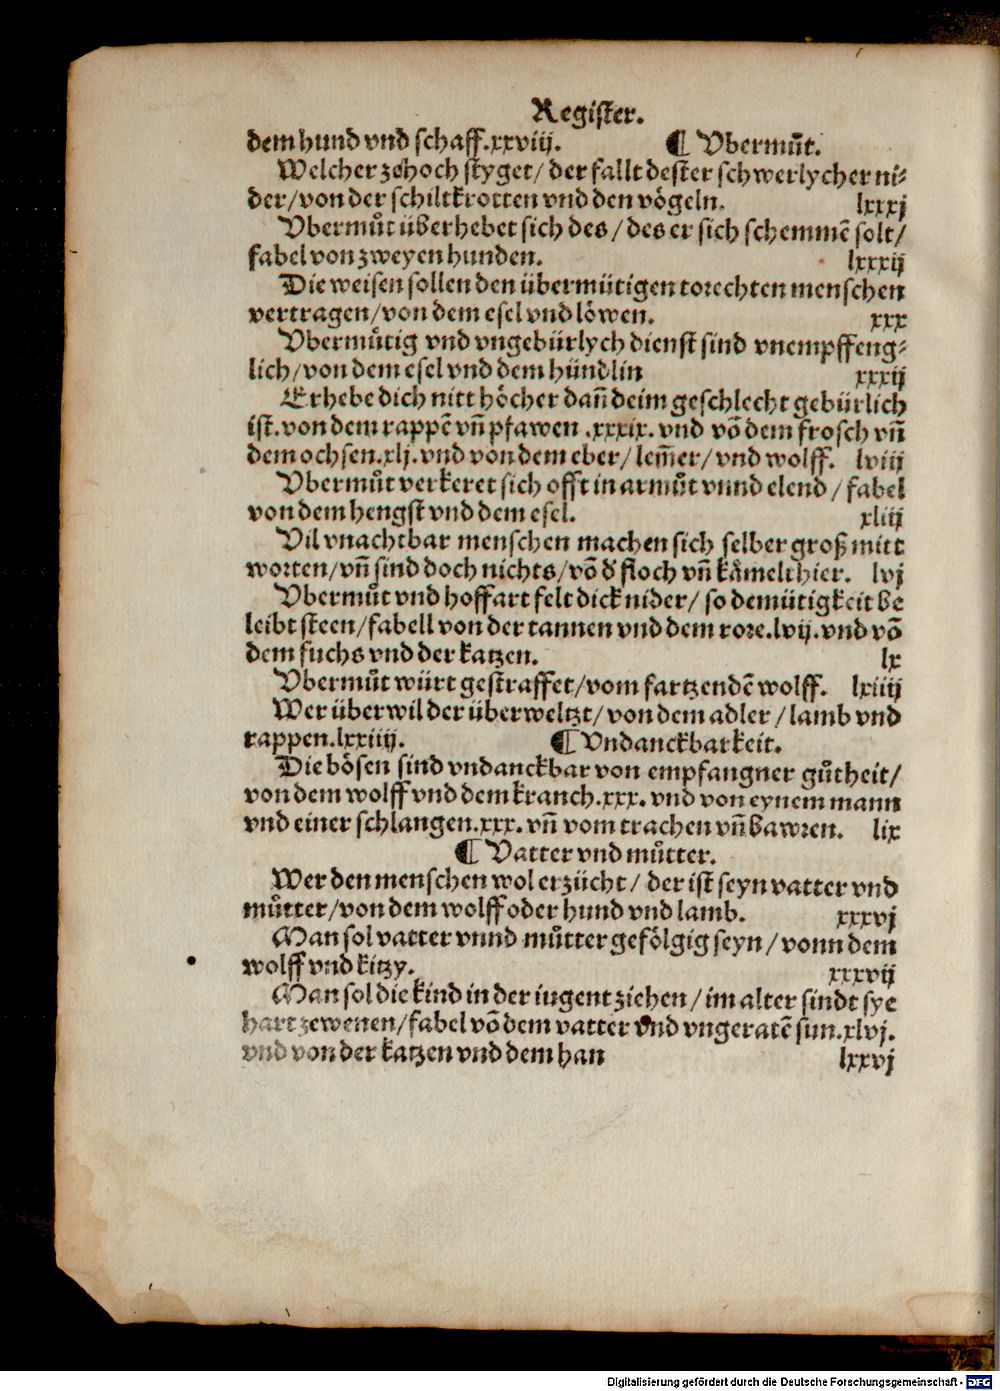 Register.
dem hund vnd schaff.xxviij. ¶ Vbermůt.
Welcher ze hoch styget/ der fallt dester schwerlycher ni⸗
der/von der schiltkrotten vnd den vögeln. lxxxj
Vbermůt überhebet sich des/ des er sich schemmē solt/
fabel von zweyen hunden. lxxxij
Die weisen sollen den übermütigen torechten menschen
vertragen/von dem esel vnd löwen. xxx
Vbermütig vnd vngebürlych dienst sind vnempffeng⸗
lich/von dem esel vnd dem hündlin xxxij
Erhebe dich nitt höcher dañ deim geschlecht gebürlich
ist.von dem rappē vñ pfawen .xxxix. vnd vō dem frosch vñ
dem ochsen.xlj.vnd von dem eber/ lem̄er/ vnd wolff. lviij
Vbermůt verkeret sich offt in armůt vnnd elend / fabel
von dem hengst vnd dem esel. xliij
Vil vnachtbar menschen machen sich selber groß mitt
worten/vñ sind doch nichts/vō d̕ floch vñ kämelthier. lvj
Vbermůt vnd hoffart felt dick nider/ so demütigkeit be
leibt steen/fabell von der tannen vnd dem rore.lvij.vnd vō
dem fuchs vnd der katzen. lx
Vbermůt würt gestraffet/vom fartzendē wolff. lxiiij
Wer über wil der überweltzt/von dem adler /lamb vnd
rappen.lxxiiij. ¶ Vndanckbarkeit.
Die bösen sind vndanckbar von empfangner gůtheit/
von dem wolff vnd dem kranch.xxx. vnd von eynem mann
vnd einer schlangen.xxx. vñ vom trachen vñ bawren. lix
¶ Vatter vnd můtter.
Wer den menschen wol erzücht/ der ist seyn vatter vnd
můtter/von dem wolff oder hund vnd lamb. xxxvj
Man sol vatter vnnd můtter gefölgig seyn/ vonn dem
wolff vnd kitzy. xxxvij
Man sol die kind in der iugent ziehen/ im alter sindt sye
hart zewenen/fabel vō dem vatter vnd vngeratē sun.xlvj.
vnd von der katzen vnd dem han lxxvj
Digitalisierung gefördert durch die Deutsche Forschungsgemeinschaft - DFG